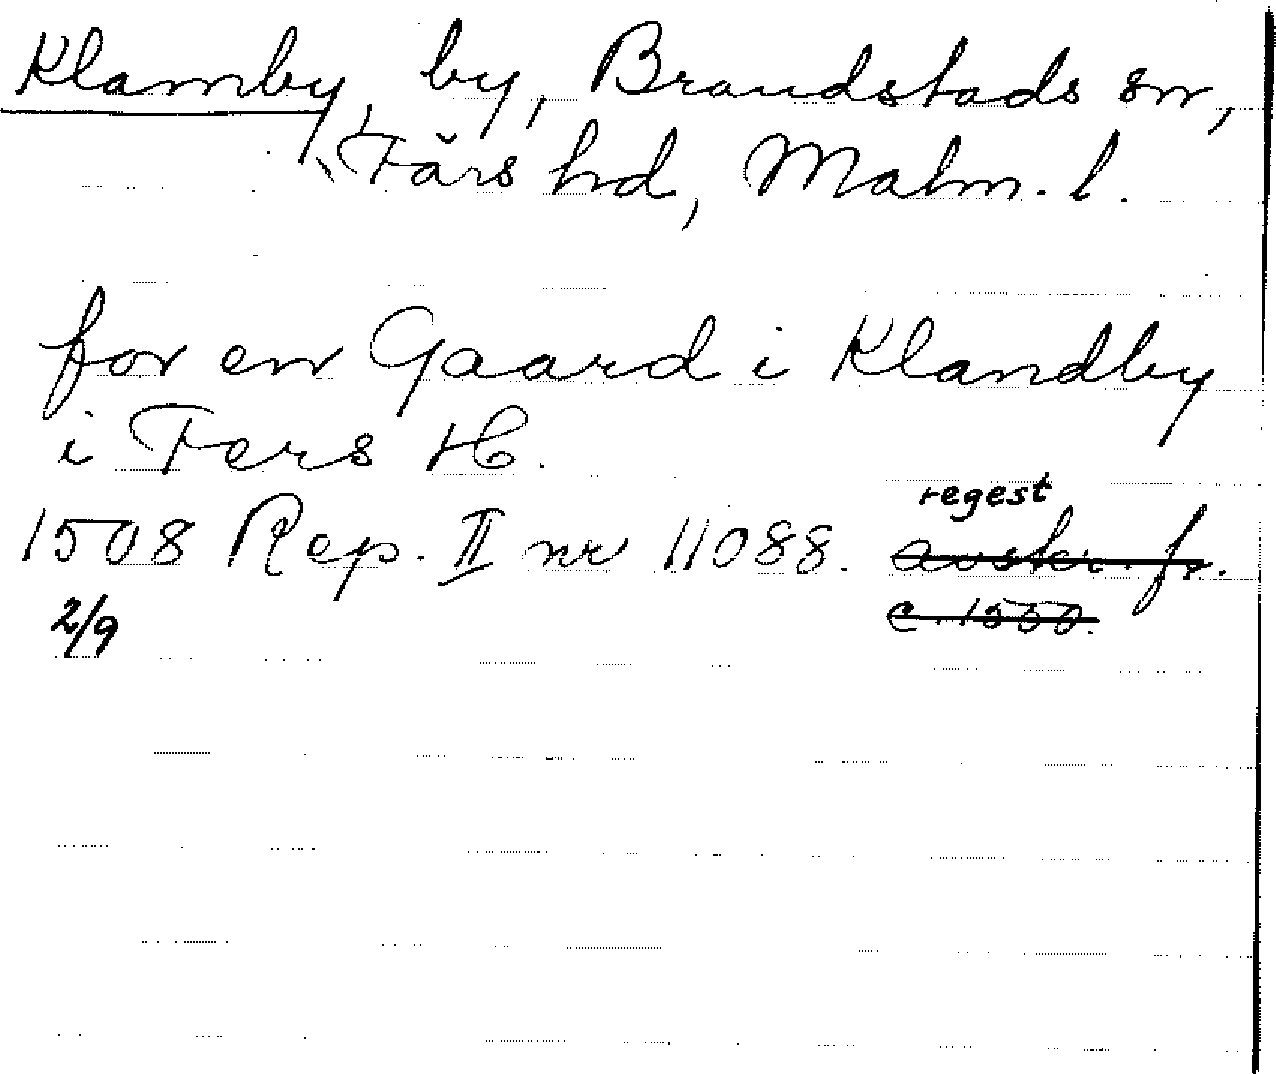 Klamby, by, Brandstads sn,
Färs hd, Malm. l.
for en Gaard i Klandby
i Fers H.
regest
1508 Rep. II nr 11088. avskr. fr.
2/9 c. 1550.